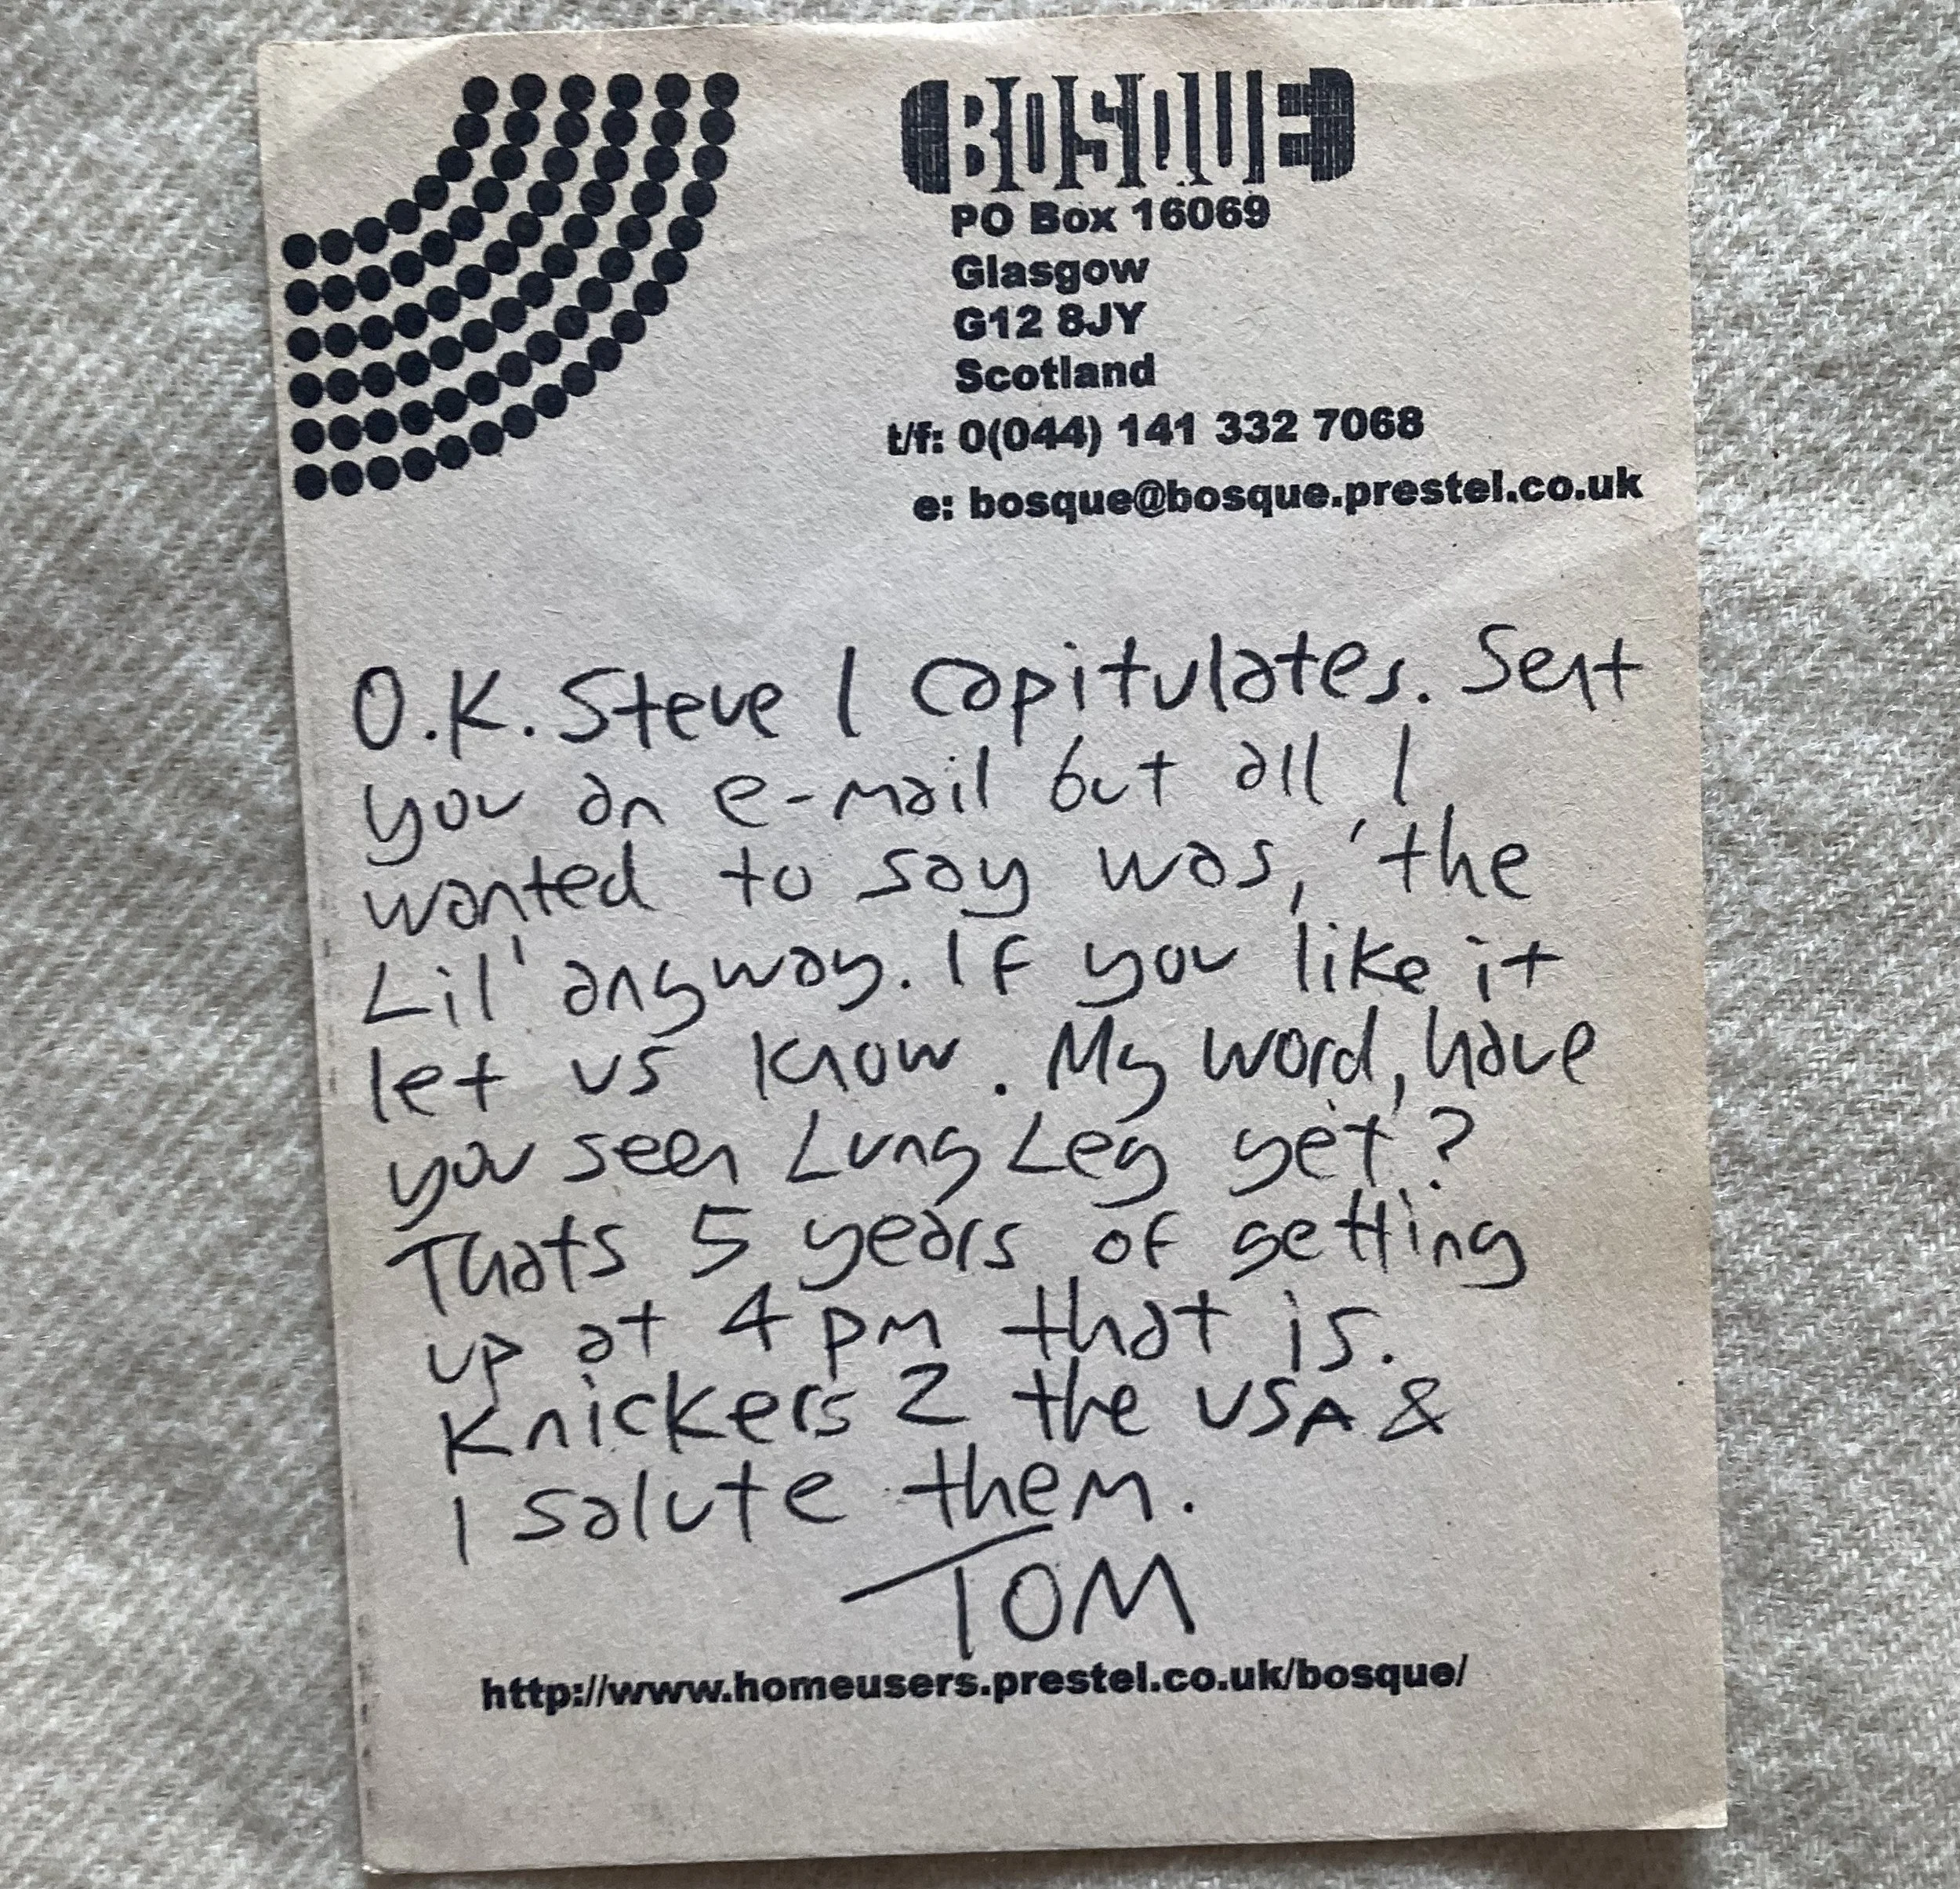 BOSQUE
PO Box 16069
Glasgow
G12 8JY
Scotland
t/f: 0(044) 141 332 7068
e: bosque@bosque.prestel.co.uk
O.K. Steve I capitulates. Sent
you an e-mail but all I
wanted to say was, 'the
Lil' anyway. If you like it
let us know. My word, have
you seen Lung Leg yet?
Thats 5 years of getting
up at 4 pm that is.
Knickers 2 the USA &
I salute them.
TOM
http://www.homeusers.prestel.co.uk/bosque/